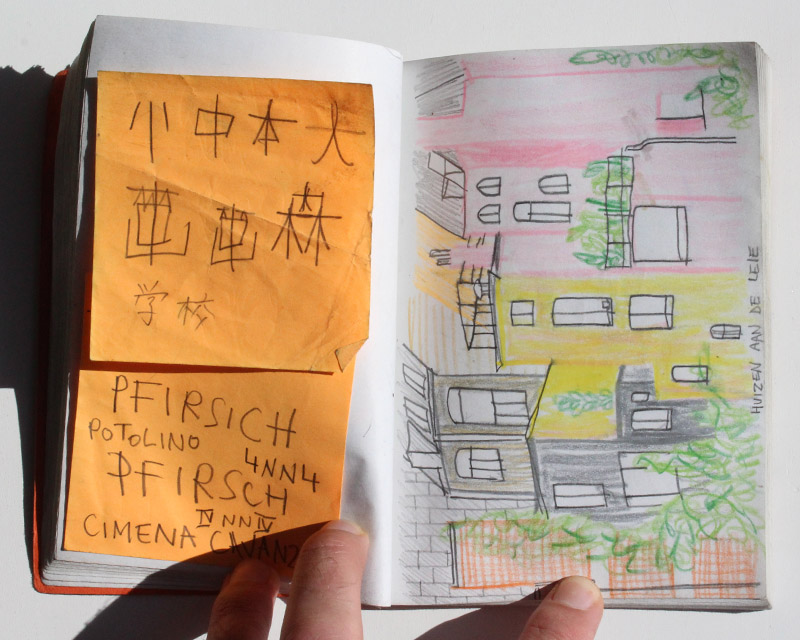 小 中 本 大
森
学校
PFIRSICH
POTOLINO
4NN4
PFIRSCH
IV NN IV
CIMENA
HUIZEN AAN DE LEIE